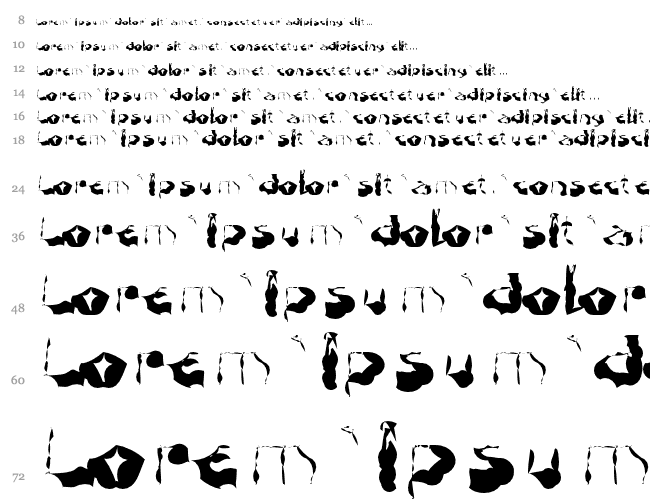 8 Lorem`ipsum`dolor`sit`amet,`consectetuer`adipiscing`elit...
10 Lorem`ipsum`dolor`sit`amet,`consectetuer`adipiscing`elit...
12 Lorem`ipsum`dolor`sit`amet,`consectetuer`adipiscing`elit...
14 Lorem`ipsum`dolor`sit`amet,`consectetuer`adipiscing`elit...
16 Lorem`ipsum`dolor`sit`amet,`consectetuer`adipiscing`elit.
18 Lorem`ipsum`dolor`sit`amet,`consectetuer`adipisci
24 Lorem`ipsum`dolor`sit`amet,`consecte
36 Lorem`ipsum`dolor`sit`am
48 Lorem`ipsum`dolor
60 Lorem`ipsum`d
72 Lorem`ipsum